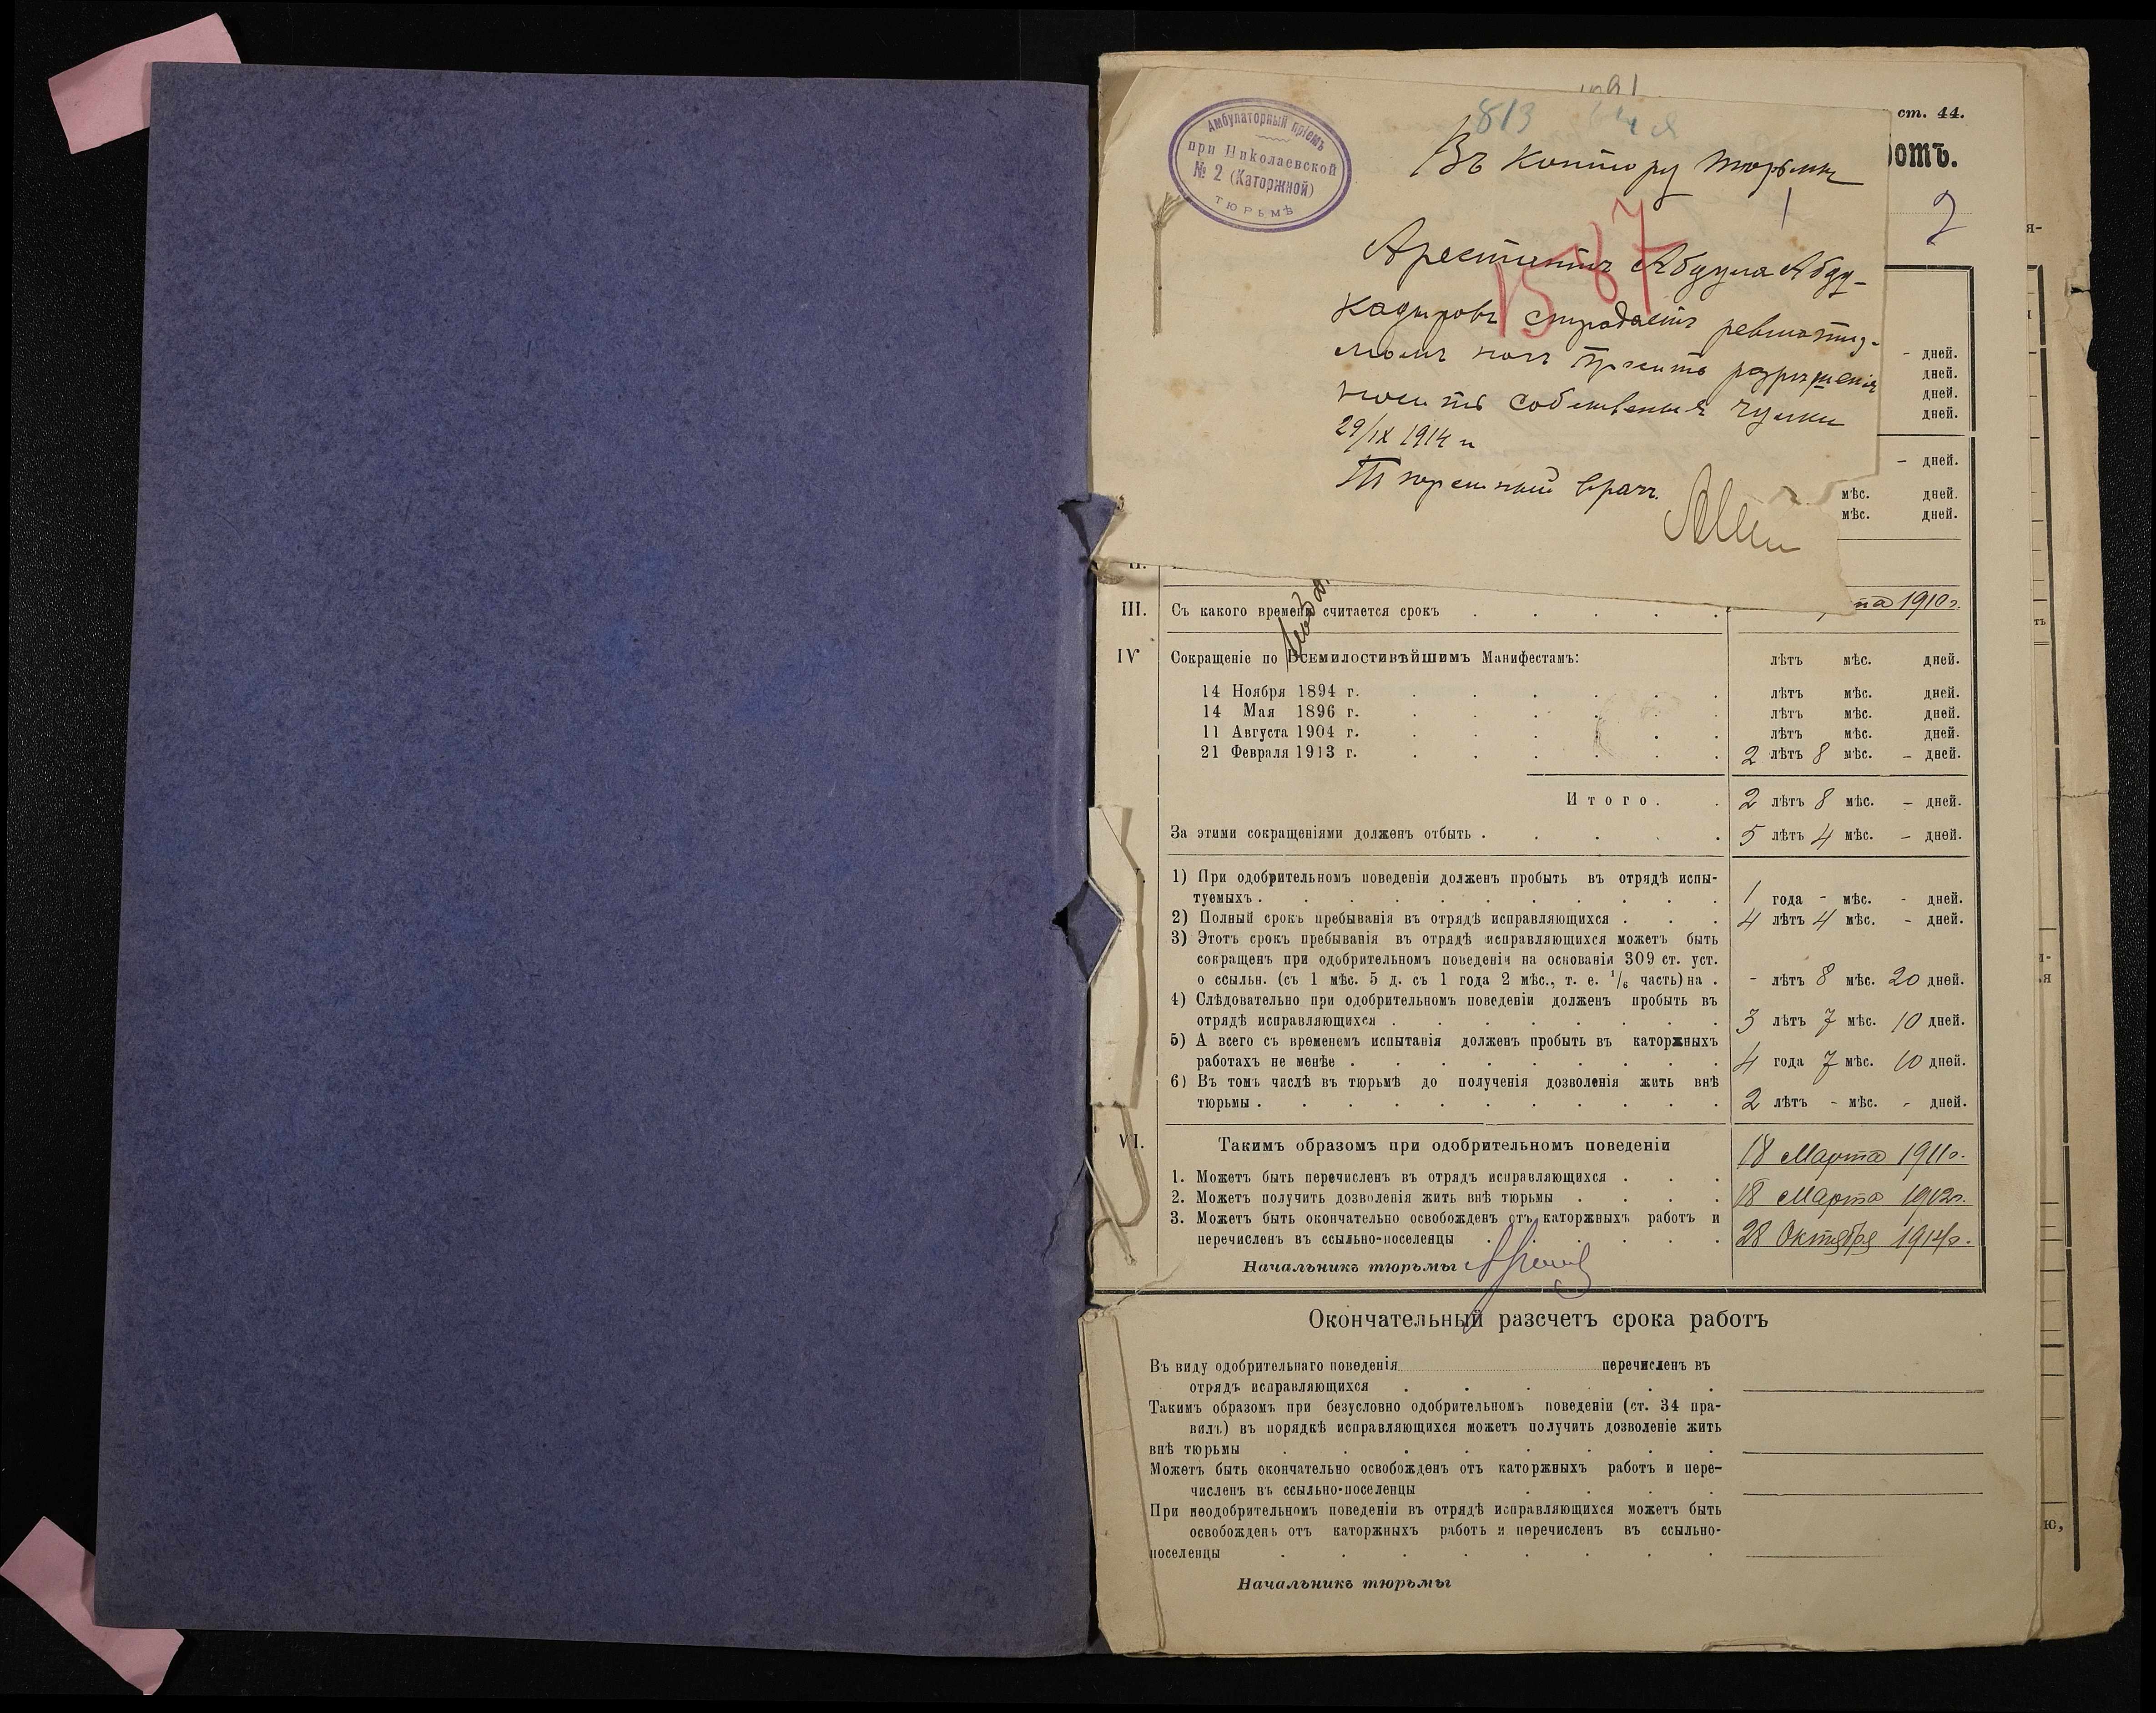 ст. 44.
813
Амбулаторный пріемъ
при Николаевской
№ 2 (Каторжной)
ТЮРЬМѢ
Въ Контору тюрьмы
1
2
1587
Арестантъ Абдула Абду-
кадыровъ страдаетъ ревматиз-
момъ ногъ Просить разрѣшенія
носить собственныя чулки
29/IX 1914 г
Тюремный врачъ
дней.
дней.
дней.
дней.
дней.
мѣс. дней.
мѣс. дней.
III. Съ какого времени считается срокъ 1910 г.
IV Сокращеніе по Всемилостивѣйшимъ Манифестамъ: лѣтъ мѣс. дней.
14 Ноября 1894 г. лѣтъ мѣс. дней.
14 Мая 1896 г. лѣтъ мѣс. дней.
11 Августа 1904 г. лѣтъ мѣс. дней.
21 Февраля 1913 г. 2 лѣтъ 8 мѣс. – дней.
Итого. 2 лѣтъ 8 мѣс. – дней.
За этими сокращеніями долженъ отбыть 5 лѣтъ 4 мѣс. – дней.
1) При одобрительномъ поведеніи долженъ пробыть въ отрядѣ испы-
туемыхъ 1 года - мѣс. - дней.
2) Полный срокъ пребыванія въ отрядѣ исправляющихся 4 лѣтъ 4 мѣс. - дней.
3) Этотъ срокъ пребыванія въ отрядѣ исправляющихся можетъ быть
сокращенъ при одобрительномъ поведеніи на основаніи 309 ст. уст.
о ссыльн. (съ 1 мѣс. 5 д. съ 1 года 2 мѣс., т. е. 1/6 часть) на - лѣтъ 8 мѣс. 20 дней.
4) Слѣдовательно при одобрительномъ поведеніи долженъ пробыть въ
отрядѣ исправляющихся 3 лѣтъ 7 мѣс. 10 дней.
5) А всего съ временемъ испытанія долженъ пробыть въ каторжныхъ
работахъ не менѣе 4 года 7 мѣс. 10 дней.
6) Въ томъ числѣ въ тюрьмѣ до полученія дозволенія жить внѣ
тюрьмы 2 лѣтъ - мѣс. - дней.
VI. Такимъ образомъ при одобрительномъ поведеніи
1. Можетъ быть перечисленъ въ отрядъ исправляющихся 18 Марта 1911 г.
2. Можетъ получить дозволенія жить внѣ тюрьмы 18 Марта 1912 г.
3. Можетъ быть окончательно освобожденъ отъ каторжныхъ работъ и
перечисленъ въ ссыльно-поселенцы 28 Октября 1914 г.
Начальникъ тюрьмы
Окончательный разсчетъ срока работъ
Въ виду одобрительнаго поведенія перечисленъ въ
отрядъ исправляющихся
Такимъ образомъ при безусловно одобрительномъ поведеніи (ст. 34 пра-
вилъ) въ порядкѣ исправляющихся можетъ получить дозволеніе жить
внѣ тюрьмы
Можетъ быть окончательно освобожденъ отъ каторжныхъ работъ и пере-
численъ въ ссыльно-поселенцы
При неодобрительномъ поведеніи въ отрядѣ исправляющихся можетъ быть
освобожденъ отъ каторжныхъ работъ и перечисленъ въ ссыльно-
поселенцы
Начальникъ тюрьмы